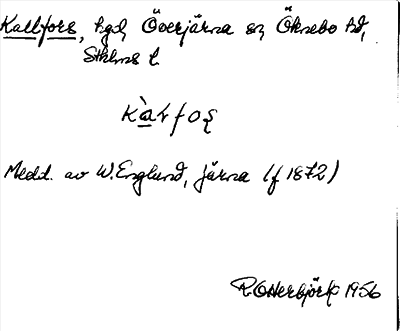 Kallfors, hgd, Överjärna sn, Öknebo hd,
Sthlms l.
Medd. av W. Englund, Järna (f 1872)
R. Otterbjörk 1956